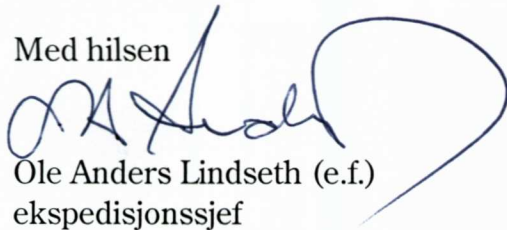 Med hilsen
Ole Anders Lindseth (e.f.)
ekspedisjonssjef